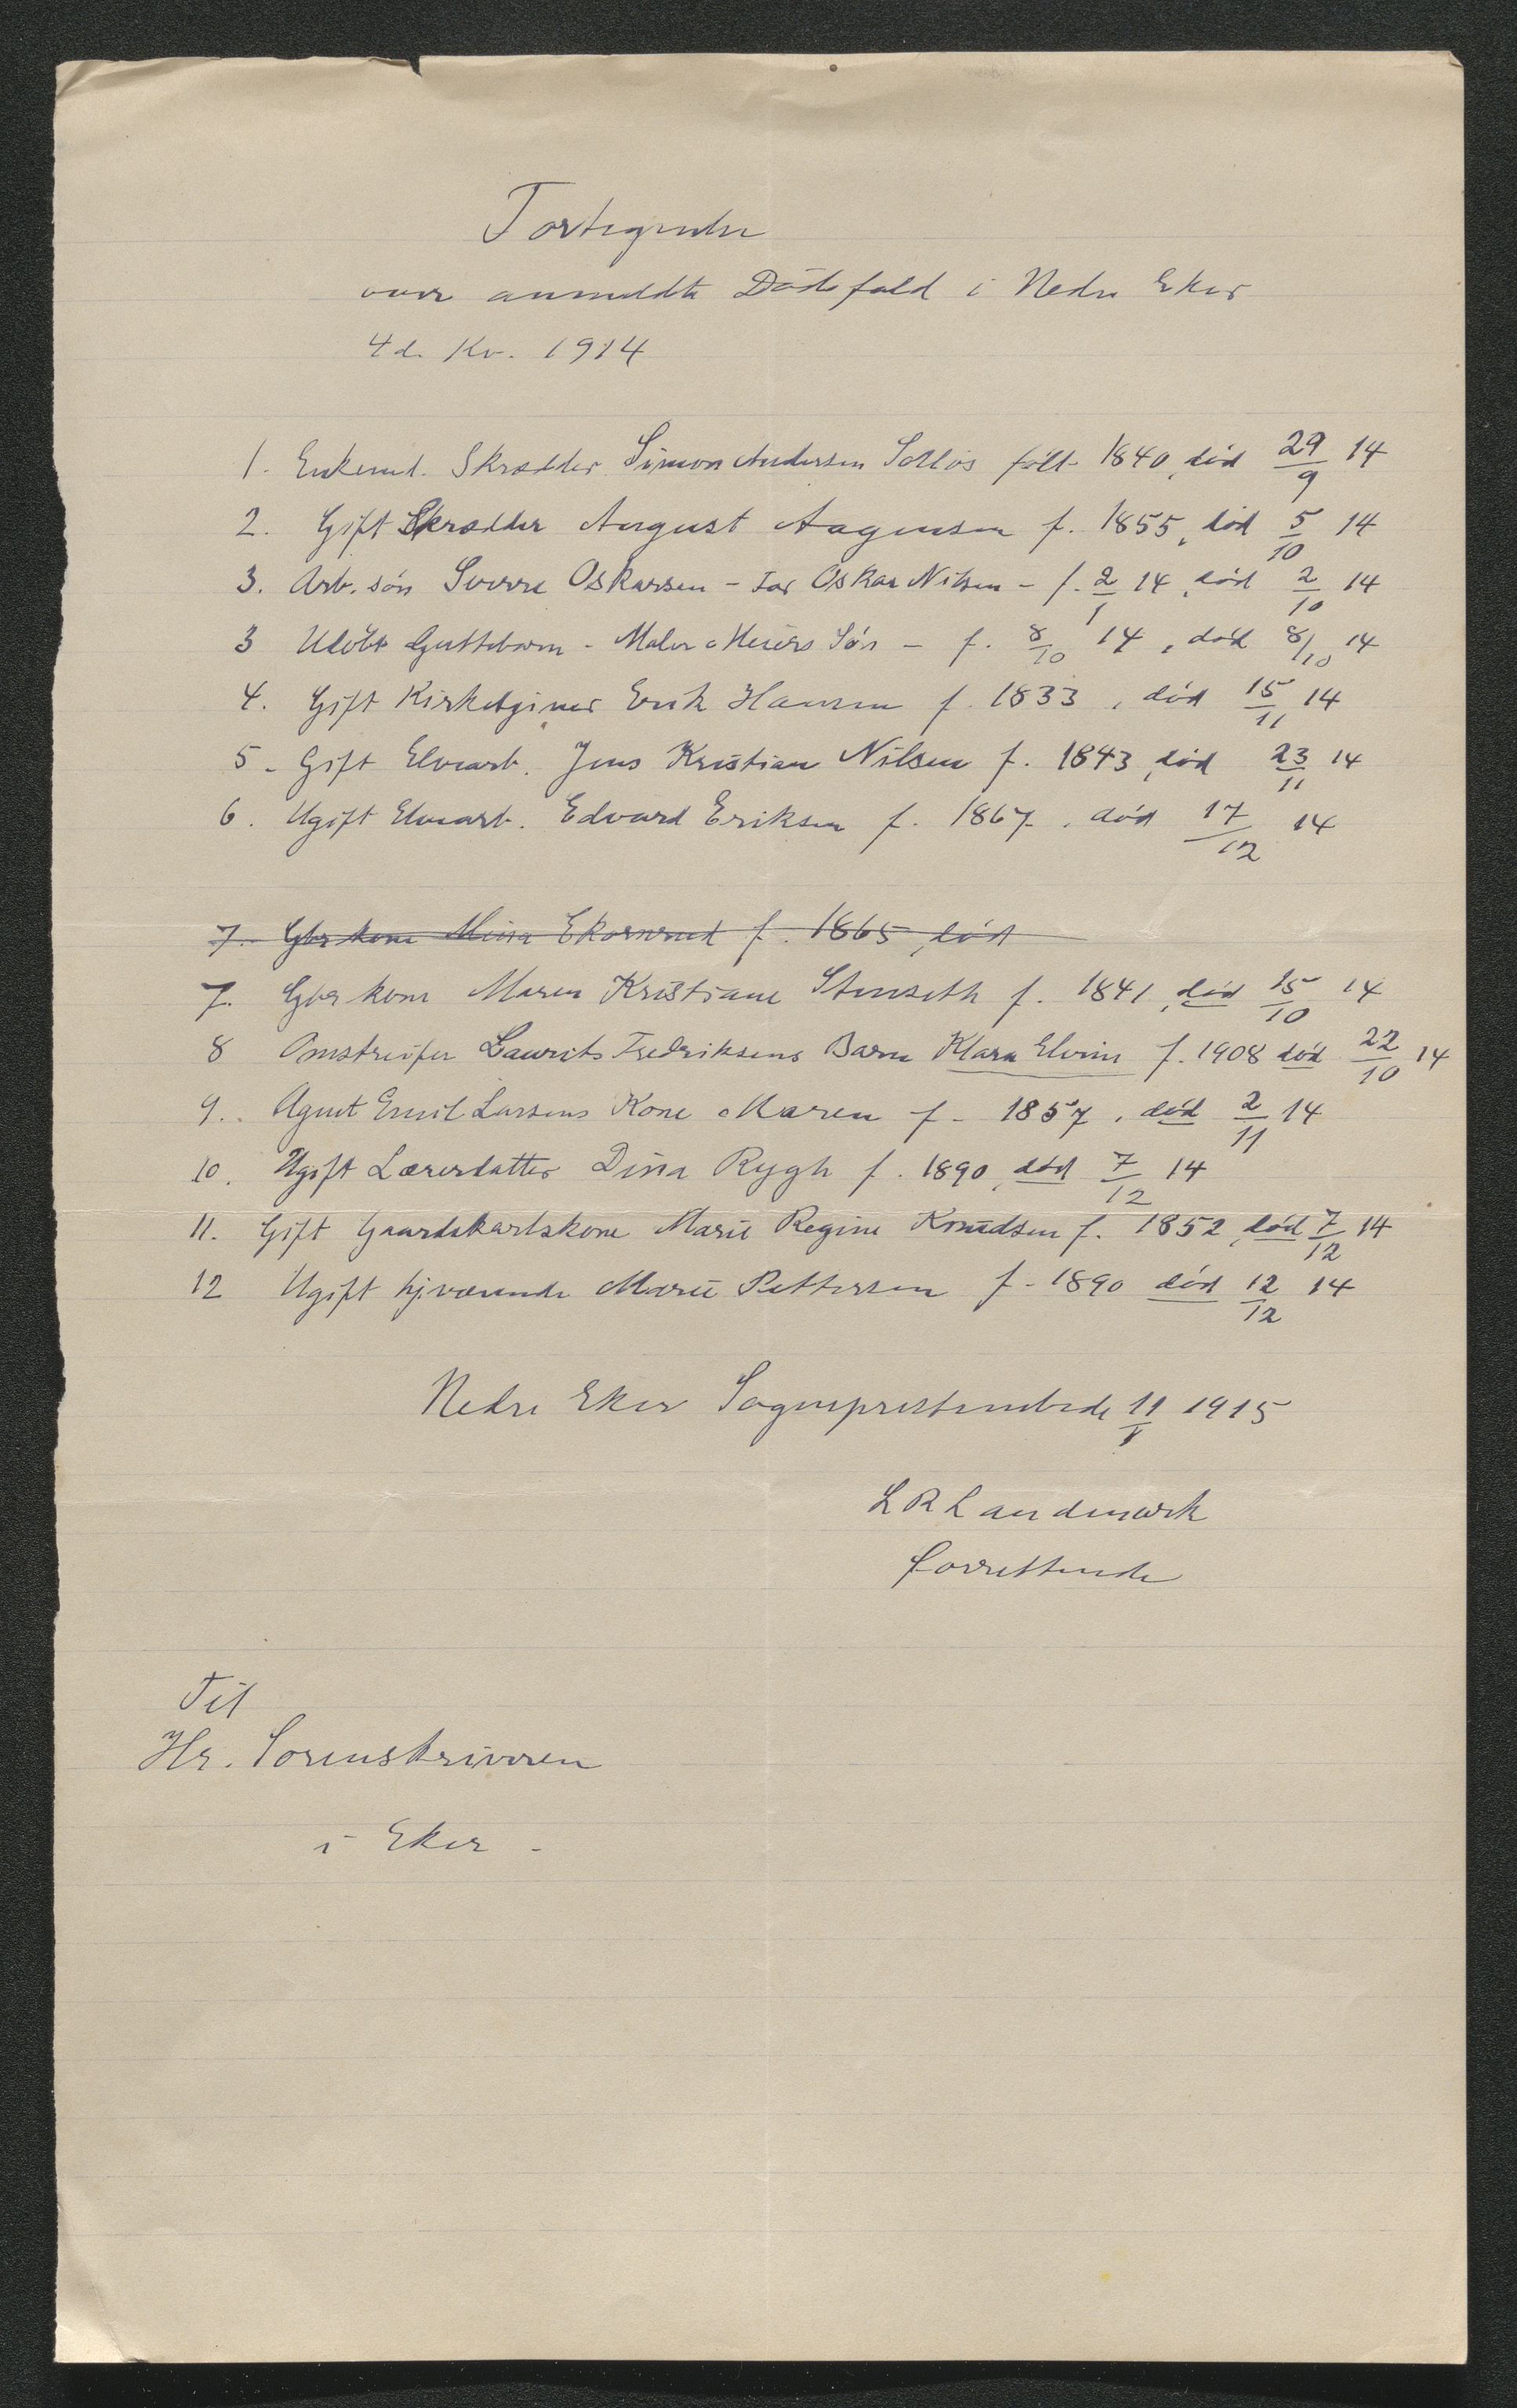 Fortegnelse
over anmeldte Dødsfald i Nedre Eker
4de Kv. 1914
1. Enkemd. Skrædder Simon Andersen Solløs født 1840, død 29/9 14
2. Gift Skrædder August Aagensen f. 1855, død 5/10 14
3. Arb. søn Sverre Oskarsen - Far Oskar Nilsen - f. 2/1 14, død 2/10 14
3 Udøbt Guttebarn - Maler Meiers Søn - f. 8/10 14, død 8/10 14
4. Gift Kirketjener Erik Hansen f. 1833, død 15/11 14
5. Gift Elvearb. Jens Kristian Nilsen f. 1843, død 23/11 14
6. Ugift Elvearb. Edvard Eriksen f. 1867, død 17/12 14
7. Gbr kone Mina Ekornrud f. 1865, død
7. Gbr kone Maren Kristiane Stenseth f. 1841, død 15/10 14
8 Omstreifer Laurits Fredriksens Barn Klara Elvine f. 1908 død 22/10 14
9. Agent Emil Larsens Kone Maren f. 1857, død 2/11 14
10. Ugift Lærerdatter Dina Rygh f. 1890, død 7/12 14
11. Gift Gaardskarlskone Marie Regine Knudsen f. 1852, død 7/12 14
12 Ugift hjværende Marie Pettersen f. 1890 død 12/12 14
Nedre Eker Sogneprestembede 11/1 1915
L R Landmark
forrettende
Til
Hr. Sorenskriveren
i Eker.